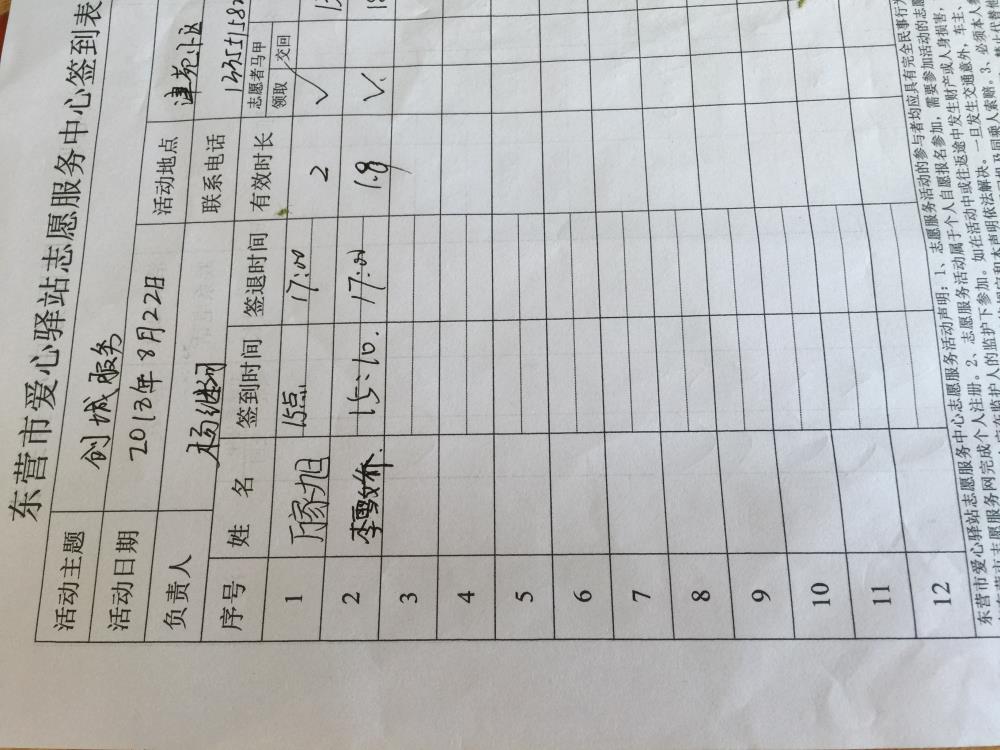 东营市爱心驿站志愿服务中心签到表
活动主题 创城服务
活动日期 2013年8月22日 活动地点 津苑小区
负责人 杨继河 联系电话
序号 姓 名 签到时间 签退时间 有效时长 志愿者马甲 领取 交回
1 15点 17:00 2 ✓
2 李雪娇 15:10. 17:00 1.8 ✓
3
4
5
6
7
8
9
10
11
12
东营市爱心驿站志愿服务中心志愿服务活动声明：1、志愿服务活动的参与者均应具有完全民事行为
东营市志愿服务网完成个人注册。2、志愿服务活动属于个人自愿报名参加，需要参加活动的志愿
在监护人的监护下参加。如在活动中或往返途中发生财产或人身损害，
和本声明依法解决。一旦发生交通意外，车主、
及同乘人索赔。3、必须本人参